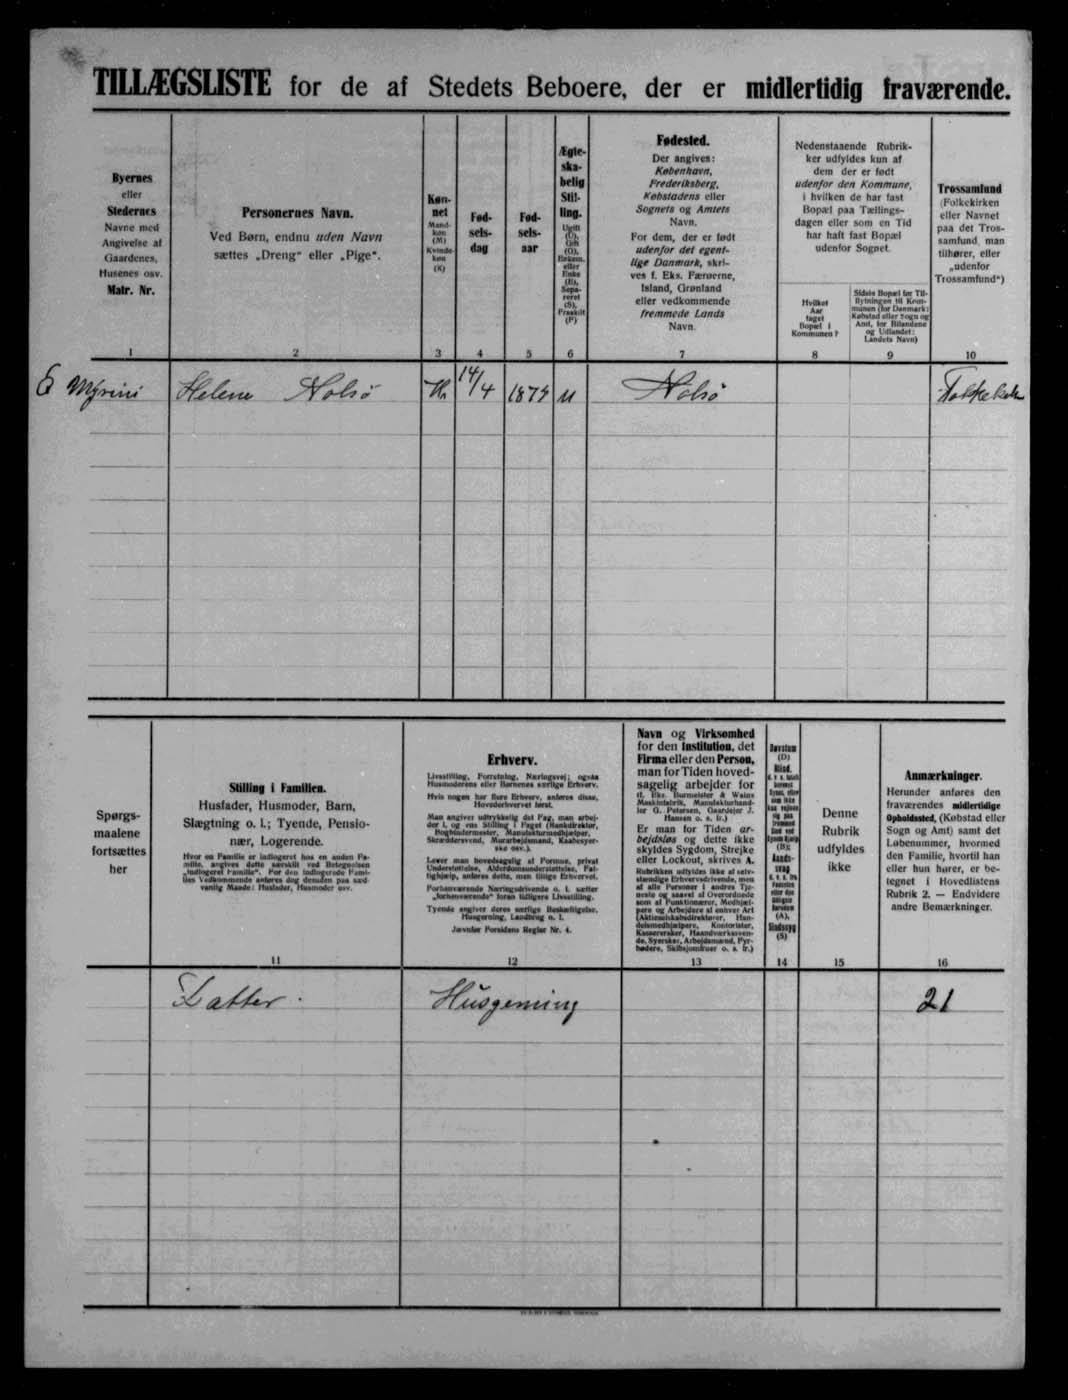 TILLÆGSLISTE for de af Stedets Beboere, der er midlertidig fraværende.
Byernes
eller
Stedernes
Navne med
Angivelse af
Gaardenes,
Husenes osv.
Matr. Nr.
1
Personernes Navn.
Ved Børn, endnu uden Navn
sættes „Dreng“ eller „Pige“.
2
Køn-
net
Mand-
køn
(M)
Kvinde-
køn
(K)
3
Fød-
sels-
dag
4
Fød-
sels-
aar
5
Ægte-
ska-
belig
Stil-
ling.
Ugift
(U),
Gift
(G),
Enkem.
eller
Enke
(E),
Sepa-
reret
(S),
Fraskilt
(F)
6
Fødested.
Der angives:
København,
Frederiksberg,
Købstadens eller
Sognets og Amtets
Navn.
For dem, der er født
udenfor det egent-
lige Danmark, skri-
ves f. Eks. Færøerne,
Island, Grønland
eller vedkommende
fremmede Lands
Navn.
7
Nedenstaaende Rubrik-
ker udfyldes kun af
dem der er født
udenfor den Kommune,
i hvilken de har fast
Bopæl paa Tællings-
dagen eller som en Tid
har haft fast Bopæl
udenfor Sognet.
Hvilket
Aar
taget
Bopæl i
Kommunen?
8
Sidste Bopæl før Til-
flytningen til Kom-
munen (for Danmark:
Købstad eller Sogn og
Amt, for Bilandene
og Udlandet:
Landets Navn)
9
Trossamfund
(Folkekirken
eller Navnet
paa det Tros-
samfund, man
tilhører, eller
„udenfor
Trossamfund“)
10
6 Myrini Helene Nolsø K 14/4 1879 U Nolsø
Spørgs-
maalene
fortsættes
her
Stilling i Familien.
Husfader, Husmoder, Barn,
Slægtning o. l.; Tyende, Pensio-
nær, Logerende.
Hvor en Familie er indlogeret hos en anden Fa-
milie, angives dette særskilt ved Betegnelsen
„indlogeret Familie“. For den indlogerede Fami-
lies Vedkommende anføres dog desuden paa sæd-
vanlig Maade: Husfader, Husmoder osv.
11
Erhverv.
Livsstilling, Forretning, Næringsvej; ogsaa
Husmoderens eller Børnenes særlige Erhverv.
Hvis nogen har flere Erhverv, anføres disse,
Hovederhvervet først.
Man angiver udtrykkelig det Fag, man arbej-
der i, og ens Stilling i Faget (Bankdirektør,
Bogbindermester, Manufakturmedhjælper,
Skræddersvend, Murarbejdsmand, Kaabesyer-
ske osv.).
Lever man hovedsagelig af Formue, privat
Understøttelse, Alderdomsunderstøttelse, Fat-
tighjælp, anføres dette, men tillige Erhvervet.
Forhenværende Næringsdrivende o. l. sætter
„forhenværende“ foran tidligere Livsstilling.
Tyende angiver deres særlige Beskæftigelse,
Husgerning, Landbrug o. l.
Jævnfør Forsidens Regler Nr. 4.
12
Navn og Virksomhed
for den Institution, det
Firma eller den Person,
man for Tiden hoved-
sagelig arbejder for
(f. Eks. Burmeister & Wains
Maskinfabrik, Manufakturhand-
ler G. Petersen, Gaardejer J.
Hansen o. s. fr.)
Er man for Tiden ar-
bejdsløs og dette ikke
skyldes Sygdom, Strejke
eller Lockout, skrives A.
Rubrikken udfyldes ikke af selv-
stændige Erhvervsdrivende, men
af alle Personer i andres Tje-
neste og saavel af Overordnede
som af Funktionærer, Medhjæl-
pere og Arbejdere af enhver Art
(Aktieselskabsdirektører, Han-
delsmedhjælpere, Kontorister,
Kasserersker, Haandværkssven-
de, Syersker, Arbejdsmænd, Fyr-
bødere, Skibsjomfruer o. s. fr.)
13
Døvstum
(D)
Blind,
(B);
Aands-
svag
(A),
Sindssyg
(S)
14
Denne
Rubrik
udfyldes
ikke
15
Anmærkninger.
Herunder anføres den
fraværendes midlertidige
Opholdssted, (Købstad eller
Sogn og Amt) samt det
Løbenummer, hvormed
den Familie, hvortil han
eller hun hører, er be-
tegnet i Hovedlistens
Rubrik 2. — Endvidere
andre Bemærkninger.
16
Datter. Husgerning 21